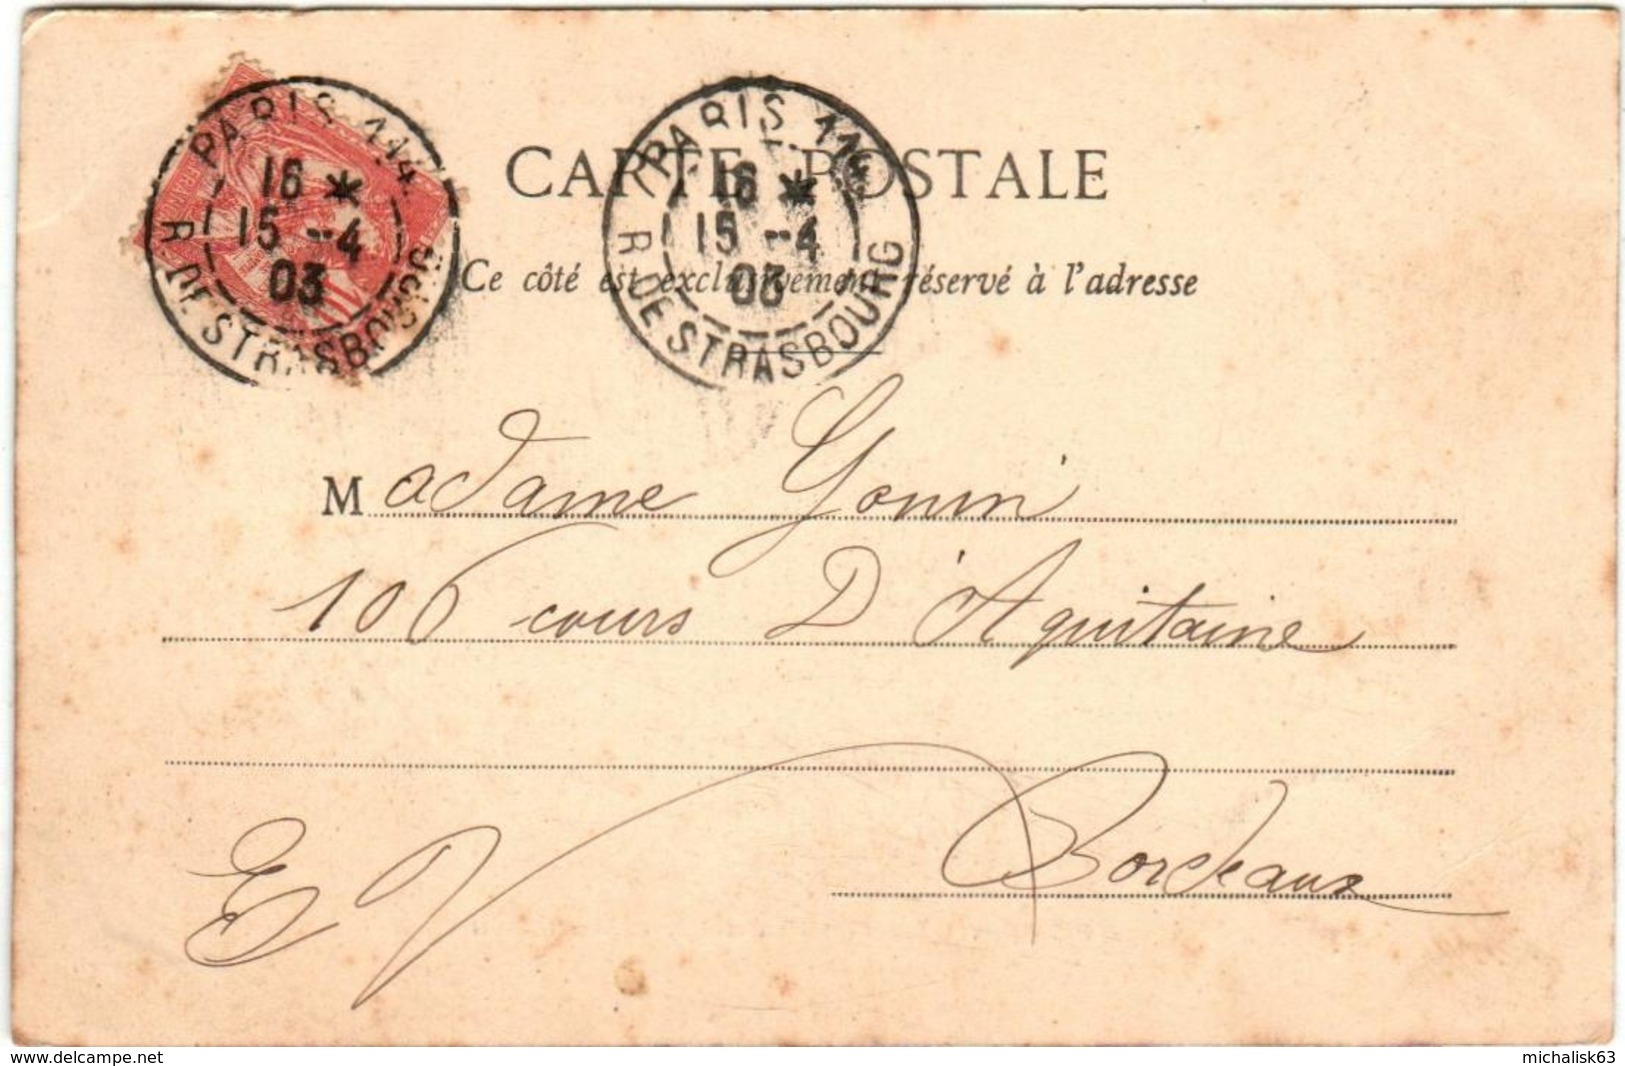 PARIS 114
16 *
15 -4
03
R. DE STRASBOURG
PARIS 114
16 *
15 -4
03
R. DE STRASBOURG
CARTE POSTALE
Ce côté est exclusivement réservé à l'adresse
Madame Gonin
106 cours D'Aquitaine
Bordeaux
EV
www.delcampe.net
michalisk63